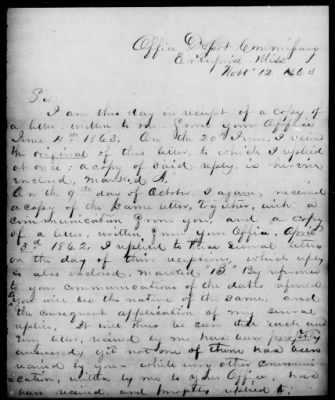 Office Depot Commissary
Enterprise Miss
Novr 12 1863
Sir
I am this day in receipt of a copy of
a letter written to me from your Office
June 4th 1863. On the 20th June I recvd
the original of this letter, to which I replied
at once, a copy of said reply is herewith
enclosed, marked A.
On the 9th day of October I again received
a copy of the same letter, together with a
communication from you, and a copy
of a letter written from your Office, April
3rd 1862, I replied to these several letters
on the day of their reception, which reply
is also enclosed, marked "B" By reference
to your communications of the dates referred
you will see the nature of the same, and
the consequent application of my several
replies. It will thus be seen that each and
every letter, recvd by me has been promptly
answered, yet not one of them has been
recvd by you — while every other communi-
cation, written by me to your Office, has
been received, and promptly replied to.